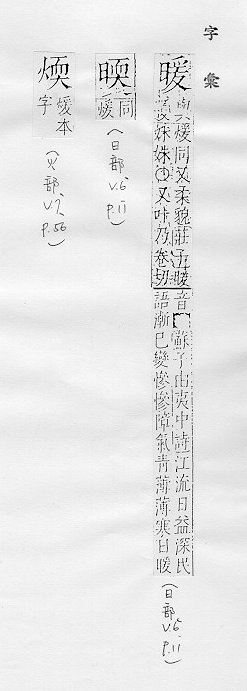 字彙
暖
與煖同又柔貌莊子暖
姝姝○又叶乃卷切
音 蘇子由夷中詩江流日益深民
語漸已變慘慘障氣青薄薄寒日暖
(日部 V.6, P.11)
㬉
同
煖
(日部 V.6, P.11)
煗
煖本
字
(火部 V.7, P.56)